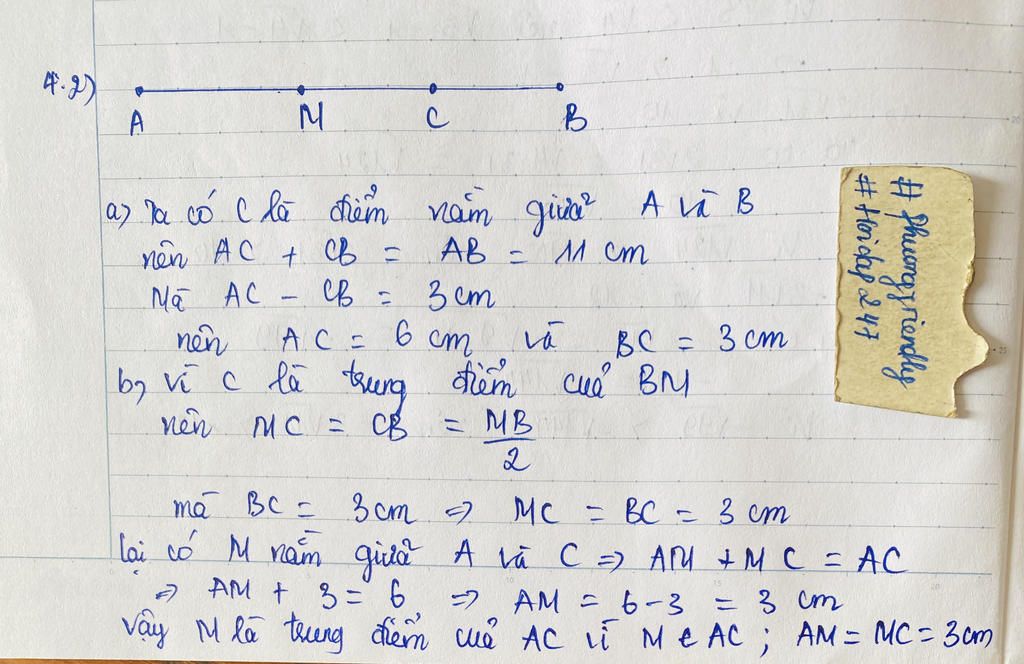 4.2)
A M C B
a) Ta có C là điểm nằm giữa A và B
nên AC + CB = AB = 11 cm
Mà AC - CB = 3 cm
nên AC = 6 cm và BC = 3 cm
b) Vì C là trung điểm của BM
nên MC = CB = MB/2
mà BC = 3 cm => MC = BC = 3 cm
lại có M nằm giữa A và C => AM + MC = AC
=> AM + 3 = 6 => AM = 6-3 = 3 cm
Vậy M là trung điểm của AC vì M ∈ AC ; AM = MC = 3cm
# Phuongfriendly
# Hoidap 247